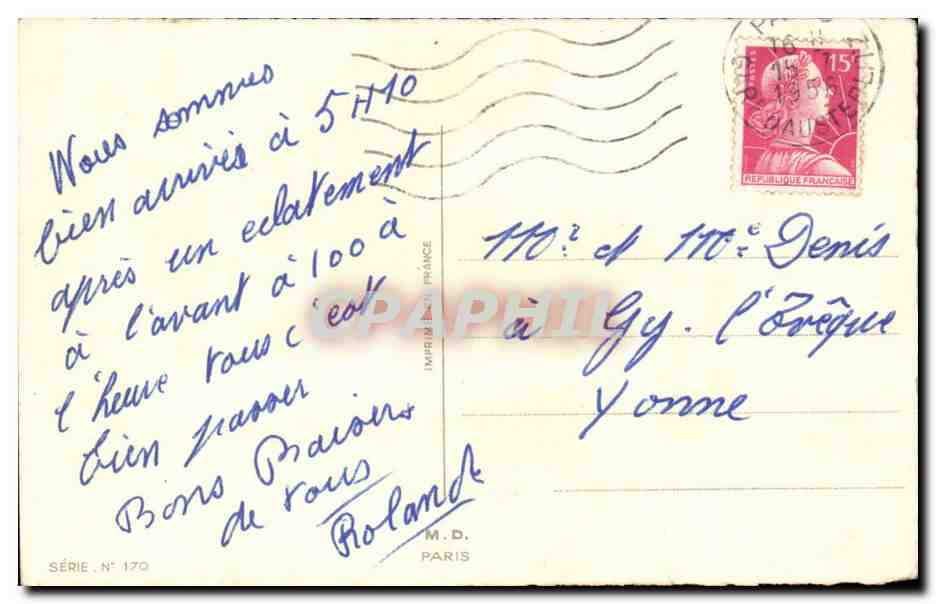 Nous sommes
bien arrivés à 5H10
après un eclatement
à l'avant à 100 à
l'heure tous c'est
bien passer
Bons Baisers
de tous
Roland
SÉRIE. N° 170
M. D.
PARIS
IMPRIMÉ EN FRANCE
CPAPHIL
POSTES
15F
REPUBLIQUE FRANCAISE
16 H
15
195
D'AUSTERLITZ
Mr et Me Denis
à Gy. l'Evêque
Yonne